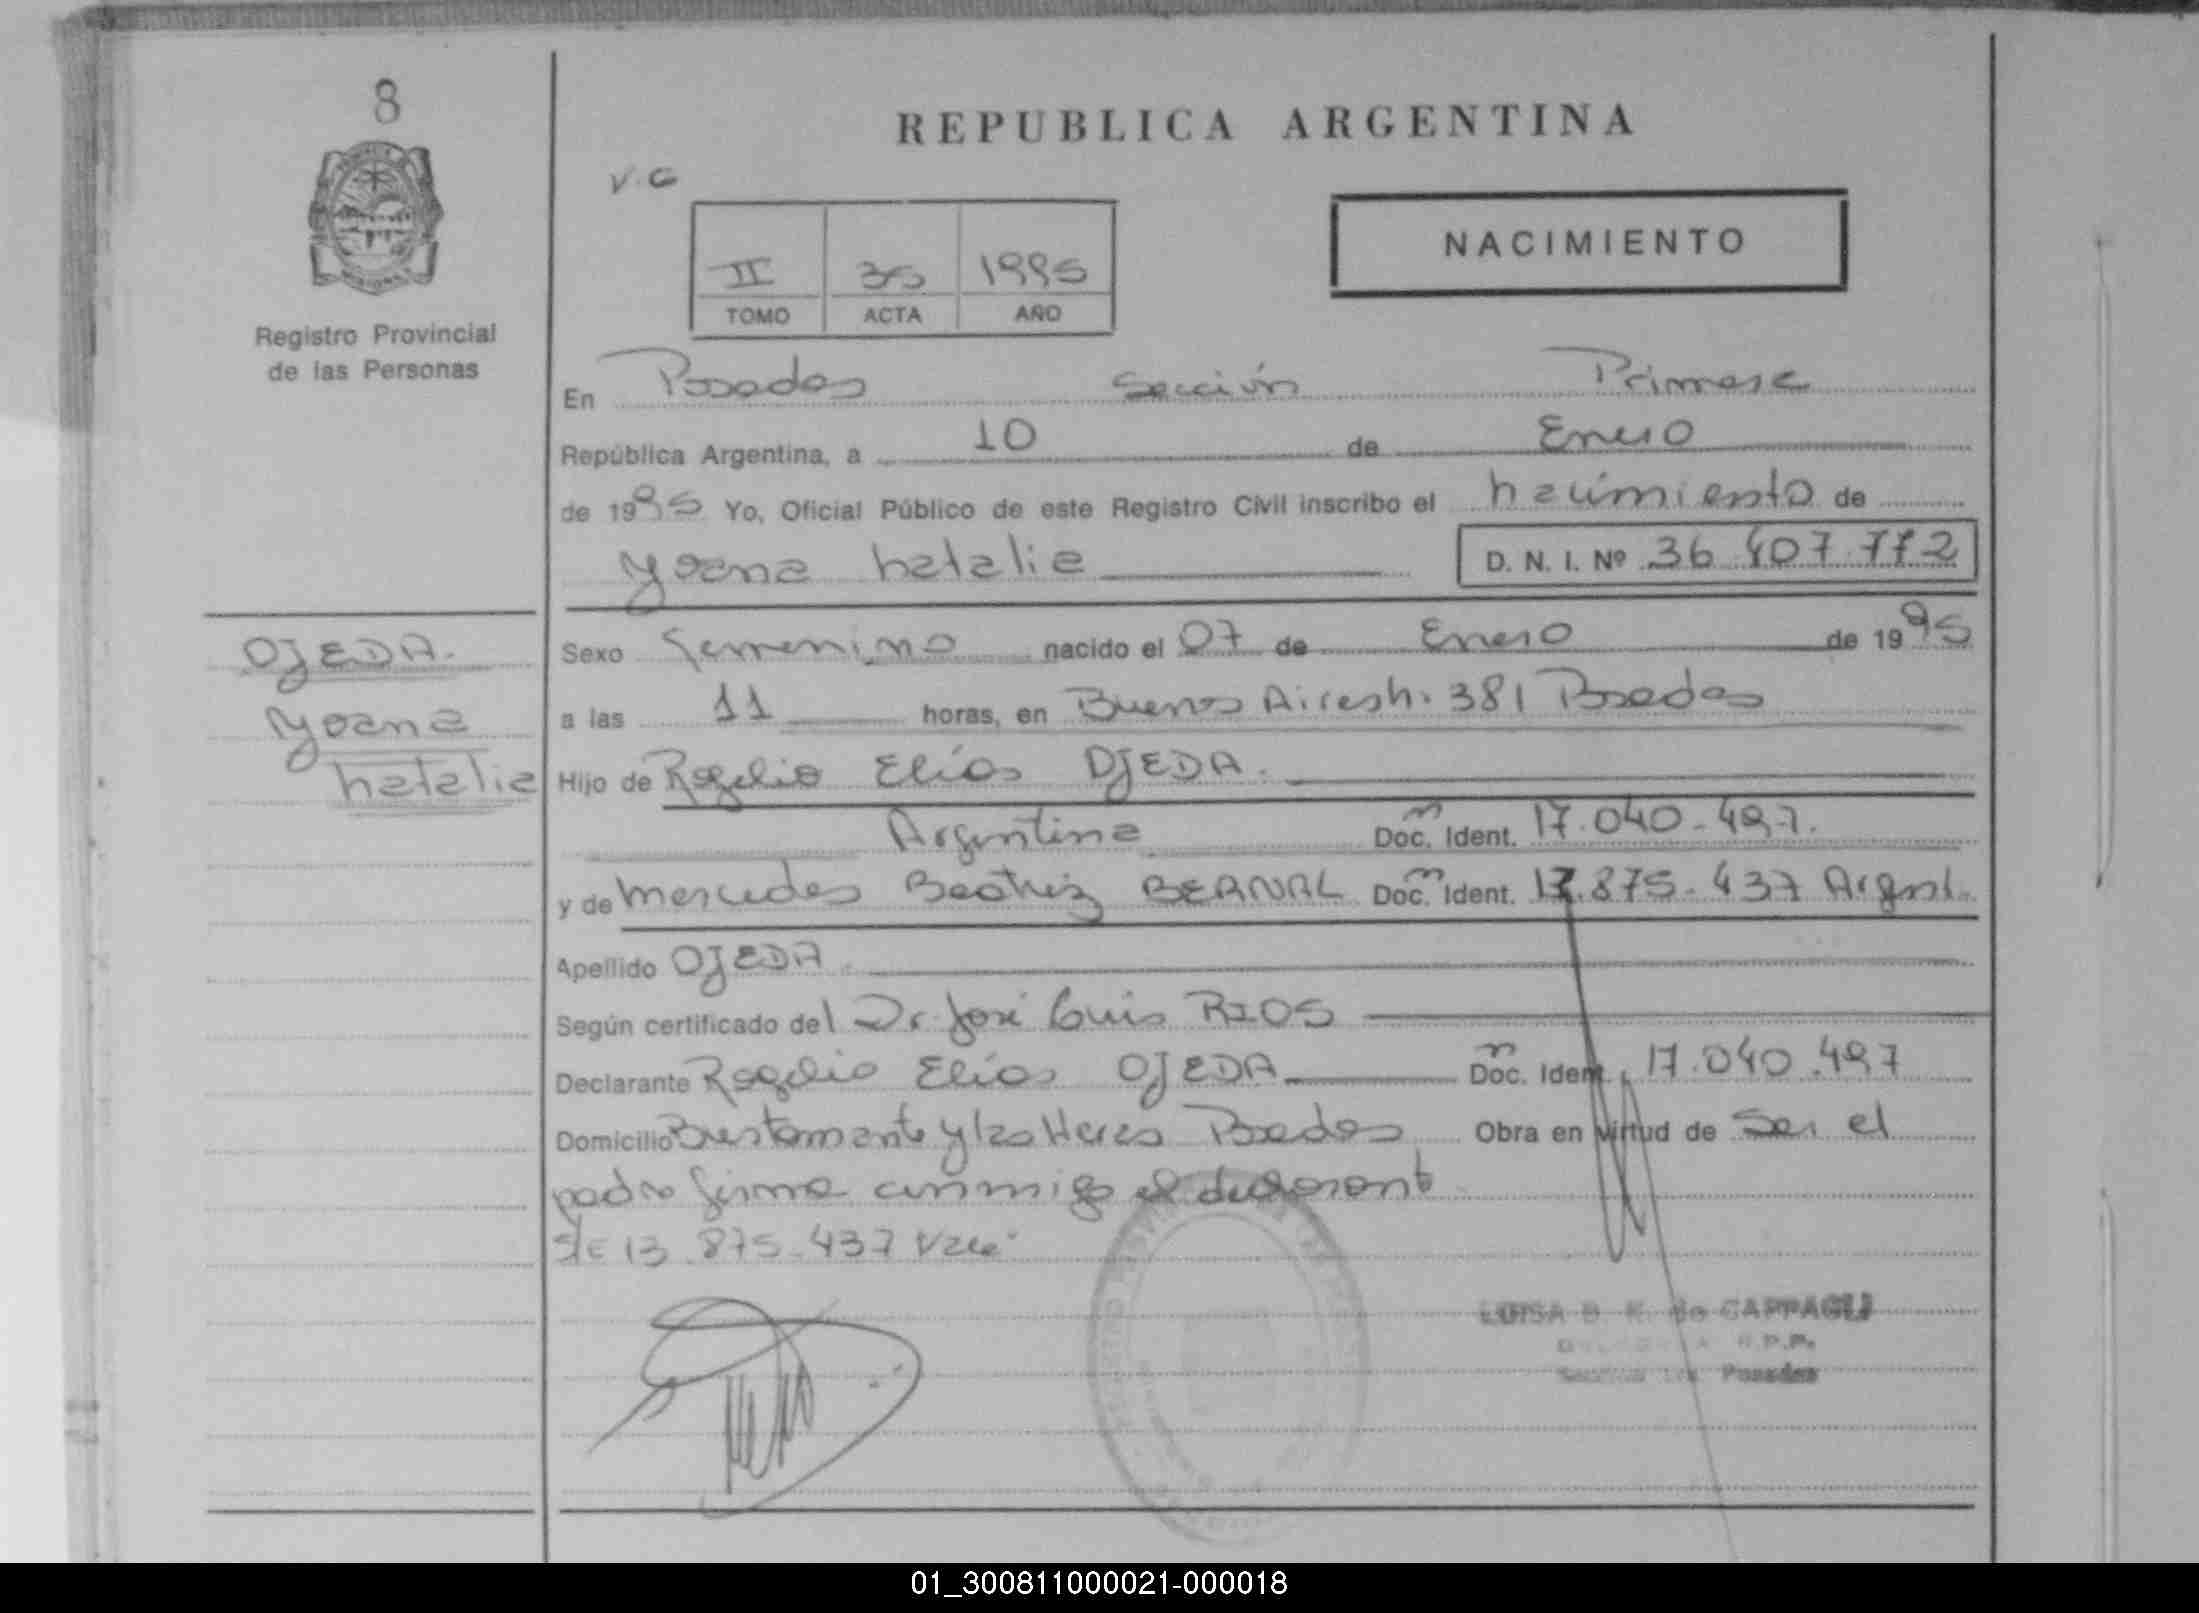 8
REPUBLICA ARGENTINA
V.G
NACIMIENTO
II 35 1995
TOMO ACTA AÑO
Registro Provincial
de las Personas
En Posadas Sección Primera
República Argentina, a 10 de Enero
de 1995 Yo, Oficial Público de este Registro Civil inscribo el nacimiento de
Yoana Natalia D. N. I. Nº 36.407.772
OJEDA.
Yoana
Natalia
Sexo femenino nacido el 07 de Enero de 1995
a las 11 horas, en Buenos Aires N. 381 Posadas
Hijo de Rogelio Elías OJEDA.
Argentina Doc. Ident. 17.040.497.
y de Mercedes Beatriz BERNAL Doc. Ident. .875.437 Argent.
Apellido OJEDA.
Según certificado del Dr. José Luis RIOS
Declarante Rogelio Elías OJEDA Doc. Ident. 17.040.497
Domicilio Bustamante y las Heras Posadas Obra en virtud de Ser el
padre firma conmigo el declarante
S/E 13.875.437 Vale
LUISA B. K. de CAPPAGLI
R.P.P.
Posadas
01_300811000021-000018